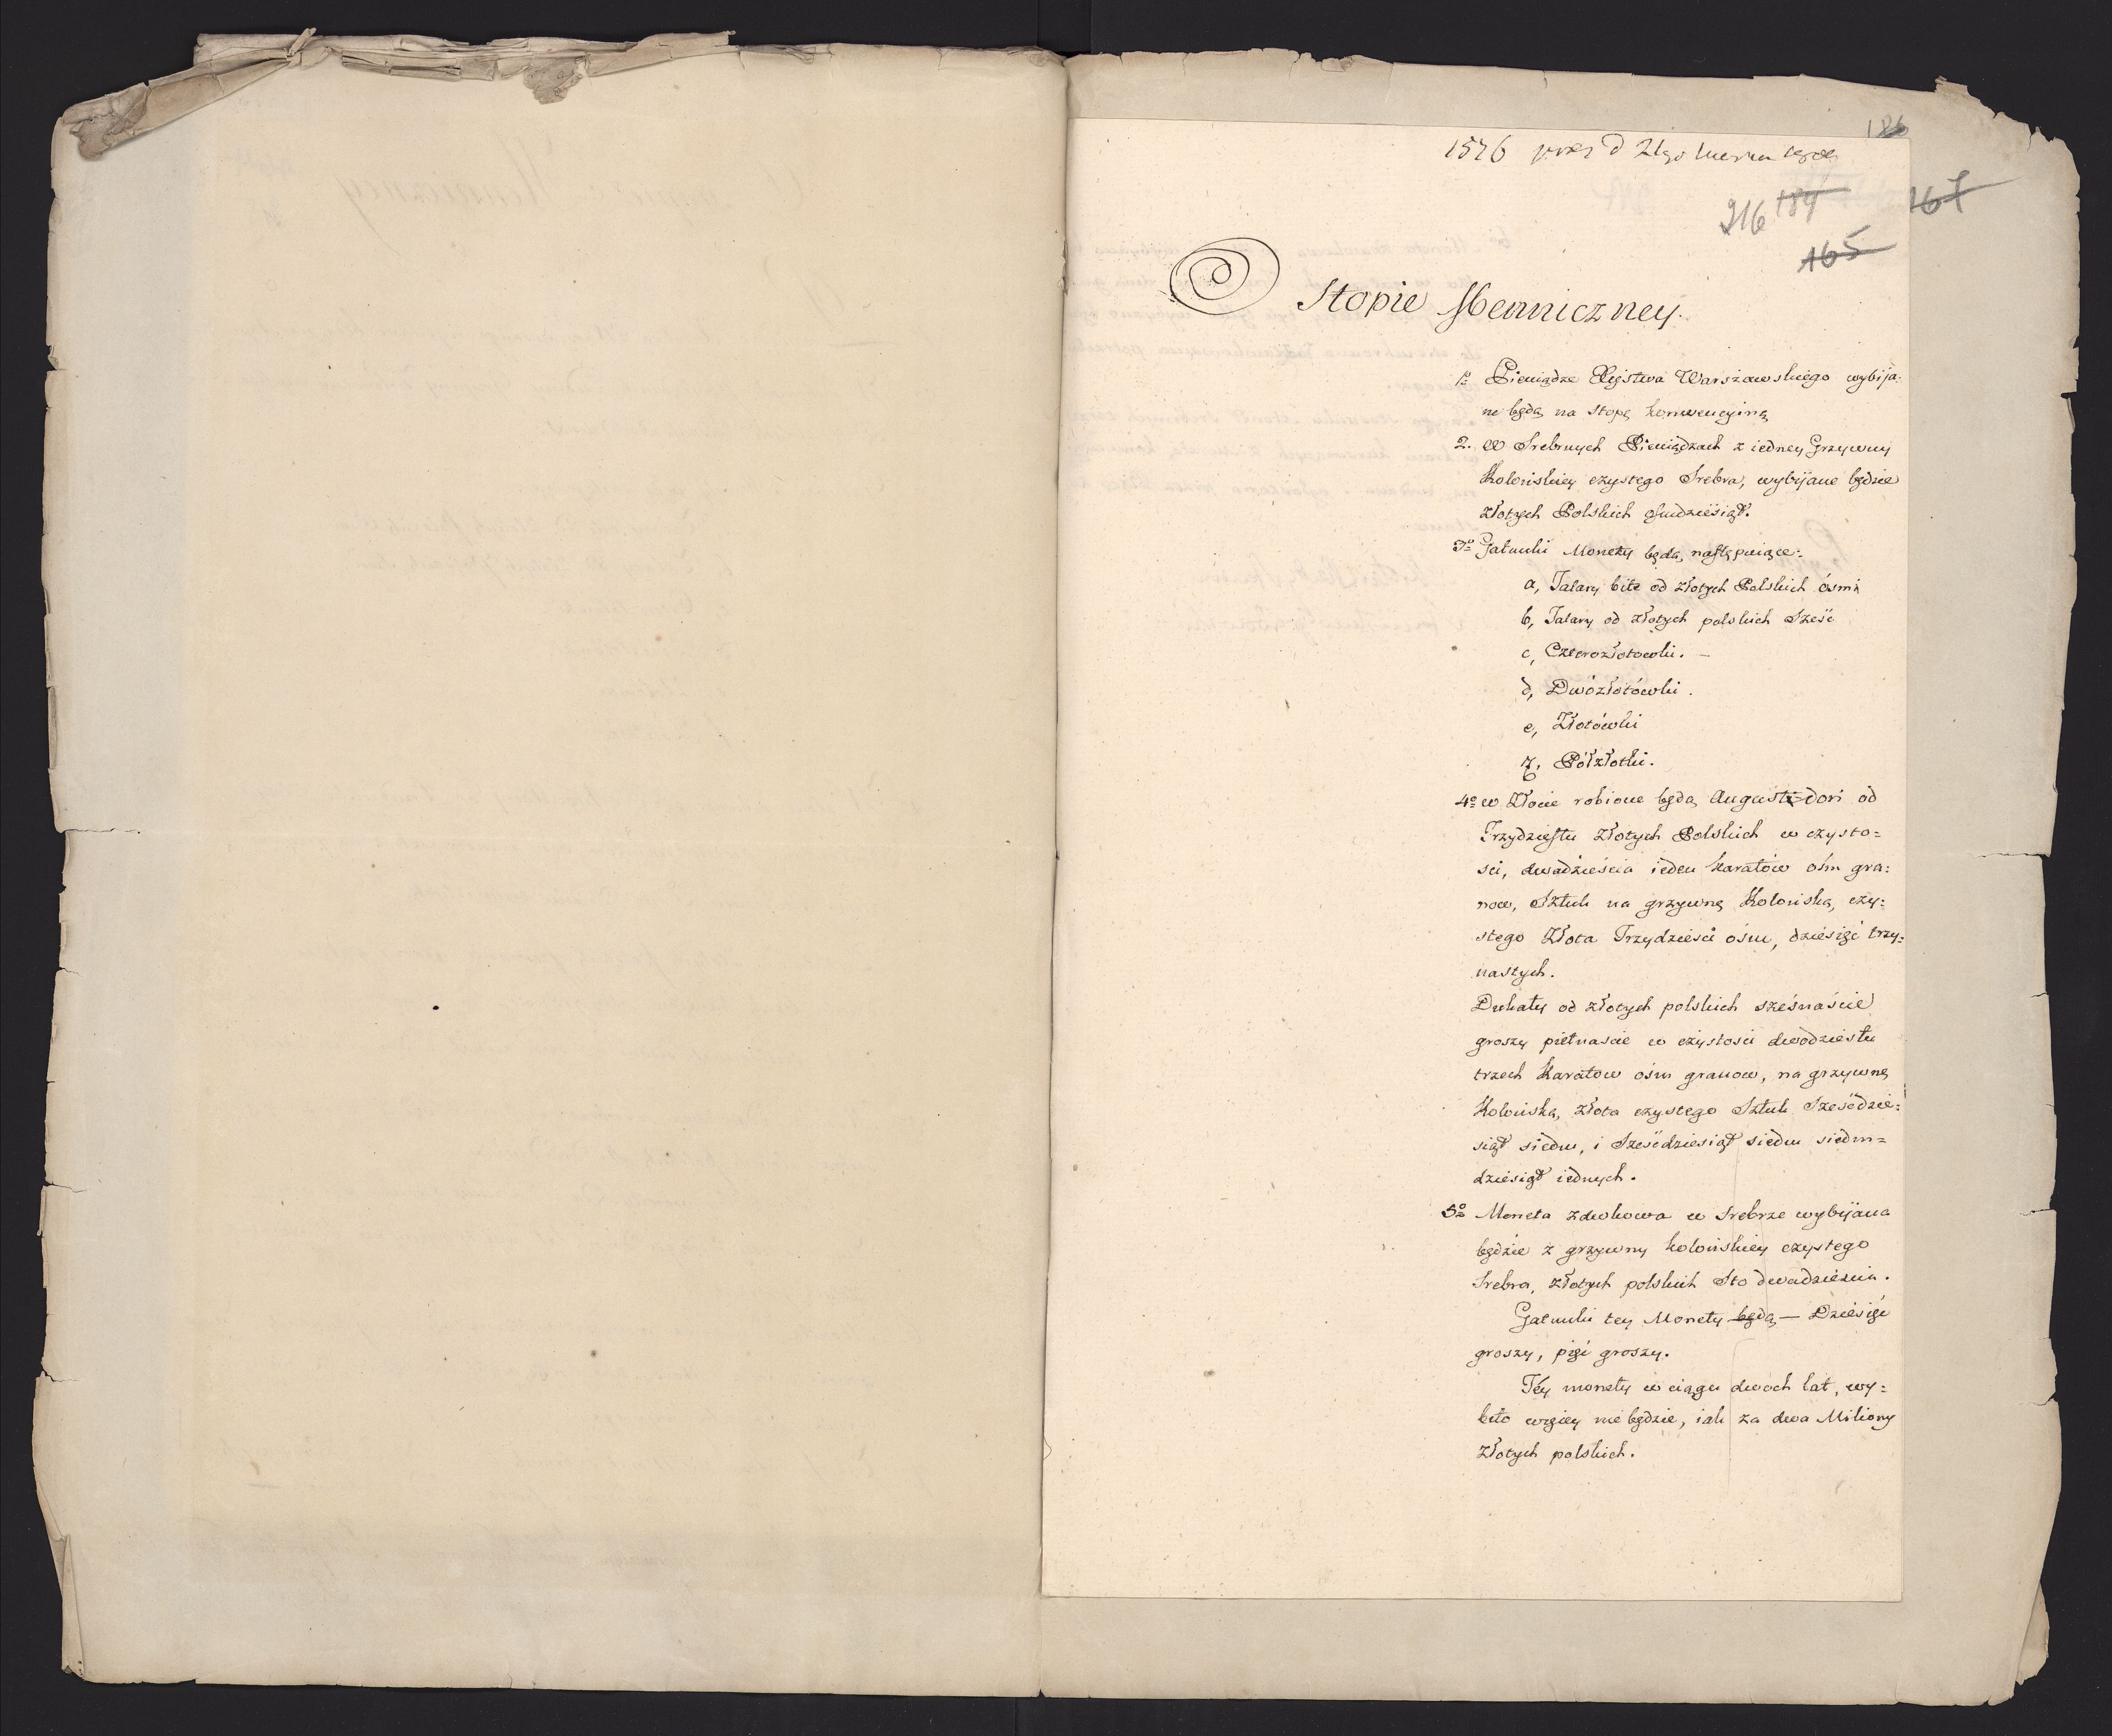 186
1576 prez d 21go
216 184 167
165
O Stopie Menniczney.
1o Pieniądze Xięstwa Warszawskiego wybija-
ne będą na stopę konwencyiną
2. W Srebrnych Pieniądzach z iedney Grzywny
Kolońskiey czystego Srebra, wybijane będzie
złotych Polskich ośmdziesiąt.
3o Gatunki Monety będą następuiące:
a, Talary bite od złotych Polskich ósmi
b, Talary od złotych polskich Sześć
c, Czterozłotowki. –
d, Dwózłotówki.
e, Złotówki
f, Półzłotki.
4o w Złocie robione będą Augustdory od
Trzydziestu Złotych Polskich w czysto=
ści, dwadzieścia ieden karatów ośm gra:
now, Sztuk na grzywnę Kolońską, czy:
stego Złota Trzydzieści ośm, dziesięć trzy:
nastych.
Dukaty od złotych polskich szesnaście
groszy pietnaście w czystości dwodziestu
trzech Karatow ośm granow, na grzywnę
Kolońską, złota czystego Sztuk Sześćdzie:
siąt siedm, i Sześćdziesiąt siedm siedm=
dziesiąt iednych.
5o Moneta zdwkowa w Srebrze wybijana
będzie z grzywny kolońskiey czystego
Srebra, złotych polskich Sto dwadzieścia.
Gatunki tey Monety będą – Dziesięć
groszy, pięć groszy.
Téy monety w ciągu dwoch lat, wy=
bito więcey nie będzie, iak za dwa Miliony
złotych polskich.